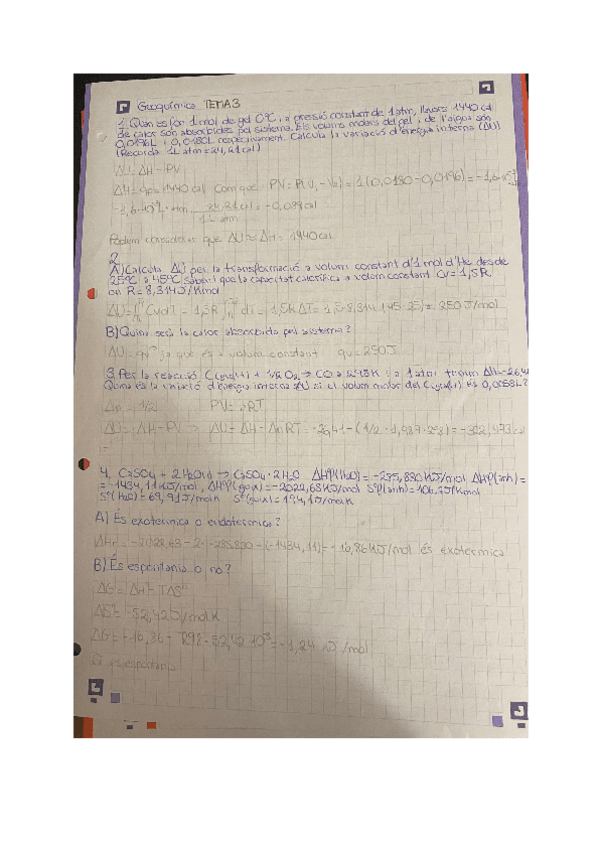 Geoquímica TEMA 3
1. Quan es fon 1 mol de gel 0ºC, i a pressió constant de 1 atm, llavors 1440 cal
de calor són absorbides pel sistema. Els volums molars del gel i de l'aigua són
0,0196L i 0,0180L respectivament. Calcula la variació d'energia interna (ΔU)
(Recorda 1L atm = 24,21 cal)
ΔU = ΔH - PV
ΔH = qp = 1440 cal com que PV = P(V₁ - V₂) = 1(0,0180 - 0,0196) = -1,6·10⁻³
-1,6·10⁻³ L · atm 24,21 cal = -0,039 cal
1L atm
Podem considerar que ΔU ≈ ΔH = 1440 cal
2
A) Calcula ΔU per la transformació a volum constant d'1 mol d'He desde
25ºC a 45ºC sabent que la capacitat calorífica a volum constant Cv = 1,5R
on R = 8,314 J/Kmol
ΔU = Cv dT = 1,5R dT = 1,5R ΔT = 1,5·8,314 (45-25) = 250 J/mol
B) Quina serà la calor absorbida pel sistema?
ΔU = qv ja que és a volum constant qv = 250J
3. Per la reacció C(grafit) + 1/2 O₂ → CO a 298K i a 1 atm tenim ΔH = -26,41
Quina és la variació d'energia interna ΔU si el volum molar del C(grafit) és 0,0053L?
Δn = 1/2 PV = nRT
ΔU = ΔH - PV → ΔU = ΔH - ΔnRT = -26,41 - (1/2 · 1,987 · 298) =
4. CaSO₄ + 2H₂O → CaSO₄·2H₂O ΔHºf(H₂O) = -285,830 KJ/mol ΔHºf(anh) =
= -1434,11 KJ/mol, ΔHºf(guix) = -2022,63 KJ/mol Sº(anh) = 106,7 J/Kmol
Sº(H₂O) = 69,91 J/molK Sº(guix) = 194,1 J/molK
A) És exotèrmica o endotèrmica?
ΔHr = -2022,63 - 2·(-285,830) - (-1434,11) = -16,86 KJ/mol és exotèrmica
B) És espontània o no?
ΔG = ΔHº - TΔSº
ΔSº = -52,42 J/molK
ΔG = -16,86 - 298 · -52,42·10⁻³ = -1,24 KJ/mol
Sí és espontània